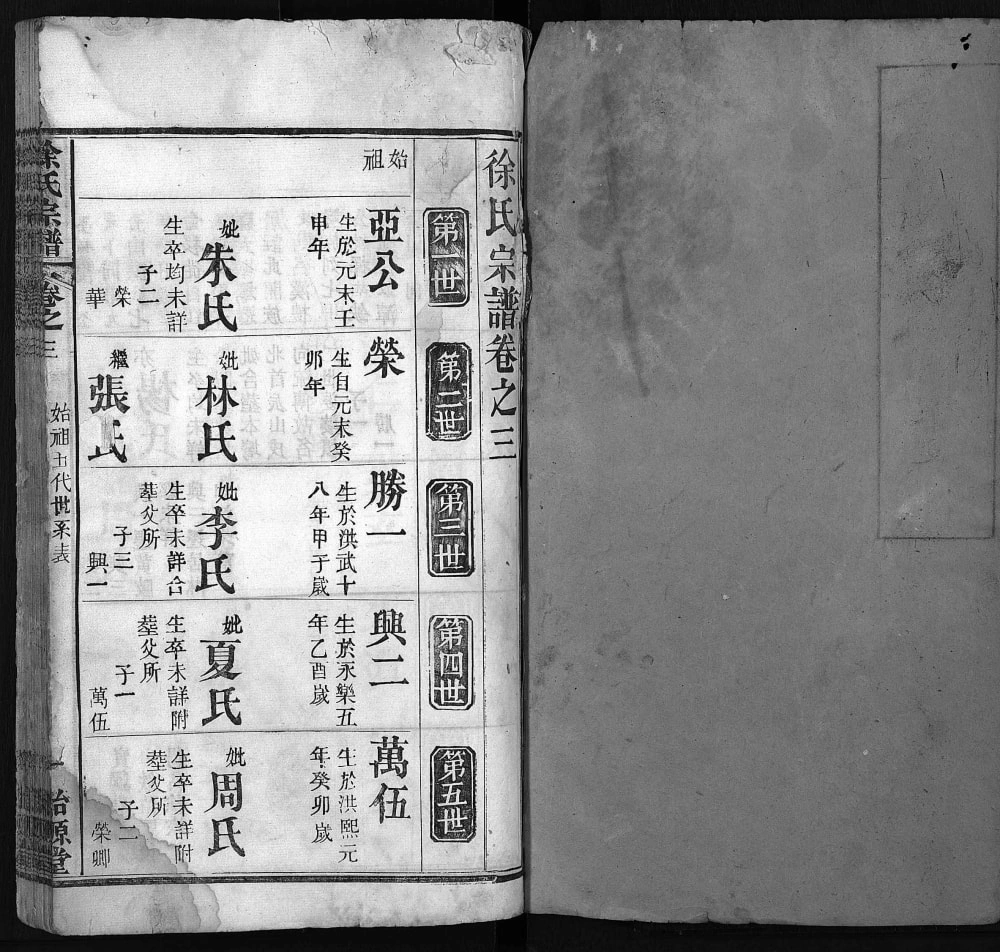 徐氏宗譜卷之三
第一世
第二世
第三世
第四世
第五世
始
祖
亞公
生於元末壬
申年
妣朱氏
生卒均未詳
子二
榮
華
榮
生自元末癸
卯年
妣林氏
繼張氏
勝一
生於洪武十
八年甲子歲
妣李氏
生卒未詳合
塟父所
子三
興一
興二
生於永樂五
年乙酉歲
妣夏氏
生卒未詳附
塟父所
子一
萬伍
萬伍
生於洪熙元
年癸卯歲
妣周氏
生卒未詳附
塟父所
子二
榮卿
徐氏宗譜
卷之三
始祖七代世系表
一
治源堂